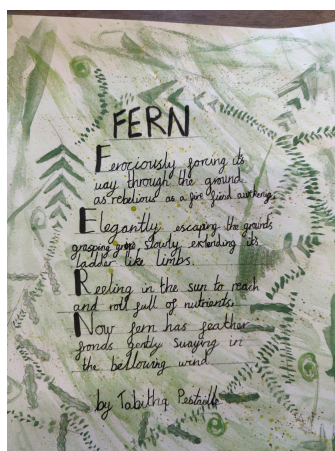 FERN
Ferociously forcing its
way through the ground
as rebelious as a fire fiend awakening.
Elegantly escaping the grounds
grasping grips, slowly extending its
ladder like limbs.
Reeling in the sun to reach
and roll full of nutrients.
Now fern has feather
fronds gently swaying in
the bellowing wind
by Tabitha Pestaille